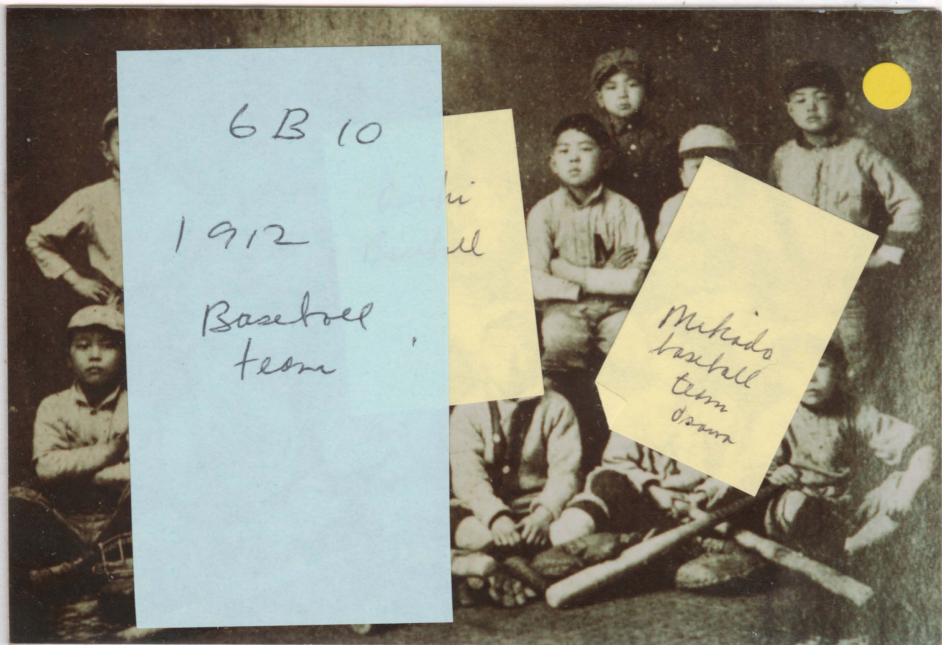 6B 10
1912
Baseball
team
Mikado
baseball
team
Osawa